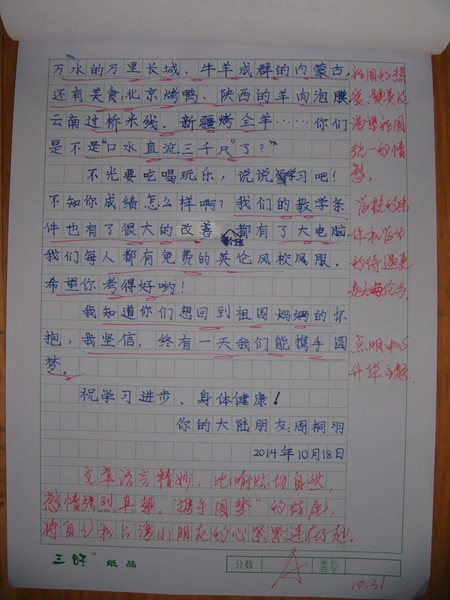 万水的万里长城、牛羊成群的内蒙古,
还有美食:北京烤鸭、陕西的羊肉泡膜
云南过桥米线、新疆烤全羊……你们
是不是“口水直流三千尺”了?
不光要吃喝玩乐,说说学习吧!
不知你成绩怎么样啊?我们的教学条
件也有了很大的改善,都有了大电脑
我们每人都有免费的英伦风校风服。
希望你考得好哟!
我知道你们想回到祖国妈妈的怀
抱,我坚信,终有一天我们能携手圆
梦。
祝学习进步、身体健康!
你的大陆朋友:周桐羽
2014年10月18日
祖国的
统一的情
点明中心
升华主题
文章语言精妙,比喻贴切自然,
感情强烈真挚。“携手圆梦”的结尾,
将自己和台湾小朋友的心紧紧连在一起。
三好 纸品
分数
A
10.31